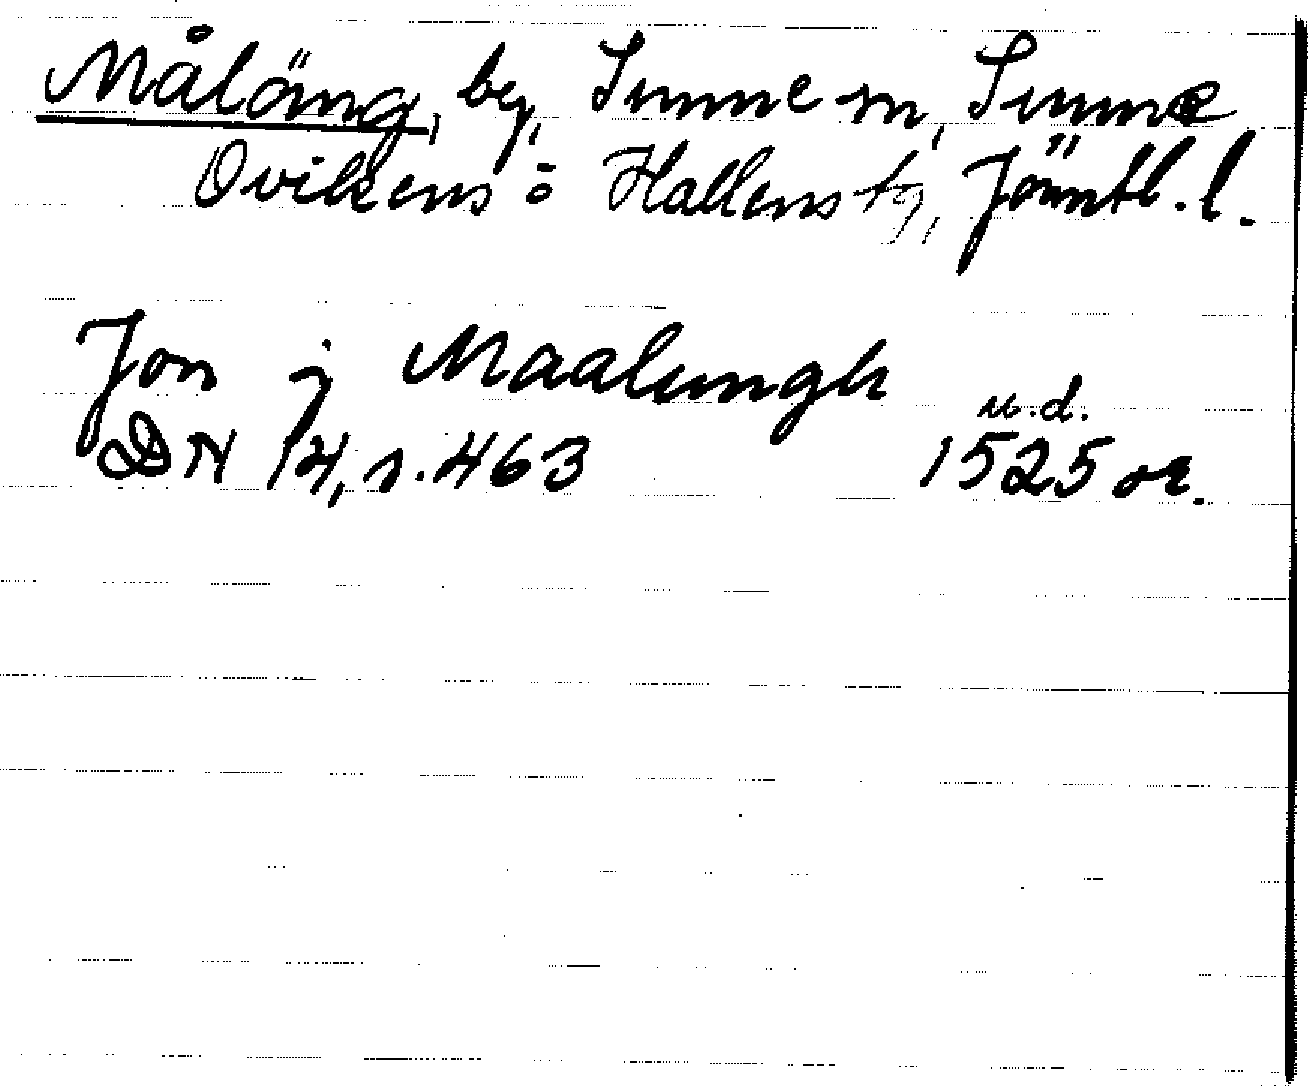 Målång, by, Sunne sn, Sunne
Ovikens o Hallens tg, Jämtl. l.
Jon j Maalungh
u.d.
DN 14, s. 463 1525 or.